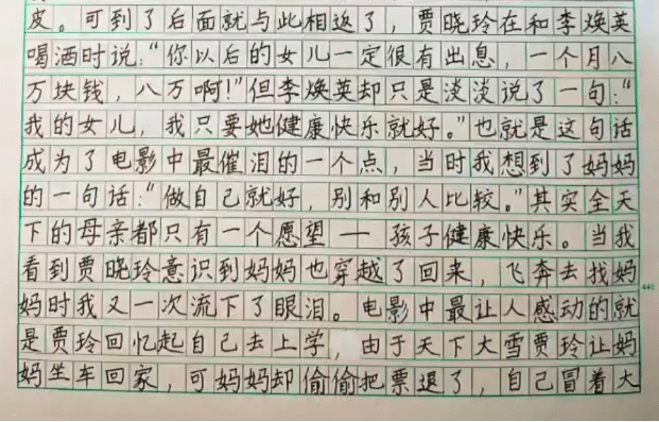 皮。可到了后面就与此相返了，贾晓玲在和李焕英
喝酒时说：“你以后的女儿一定很有出息，一个月八
万块钱，八万啊！”但李焕英却只是淡淡说了一句：“
我的女儿，我只要她健康快乐就好。”也就是这句话
成为了电影中最催泪的一个点，当时我想到了妈妈
的一句话：“做自己就好，别和别人比较。”其实全天
下的母亲都只有一个愿望——孩子健康快乐。当我
看到贾晓玲意识到妈妈也穿越了回来，飞奔去找妈
妈时我又一次流下了眼泪。电影中最让人感动的就
是贾玲回忆起自己去上学，由于天下大雪贾玲让妈
妈坐车回家，可妈妈却偷偷把票退了，自己冒着大